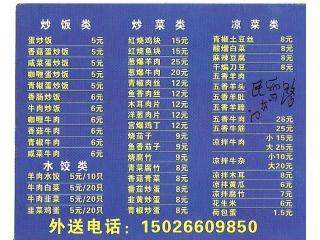 炒饭类
蛋炒饭 5元
香菇蛋炒饭 5元
咸菜蛋炒饭 5元
咖喱蛋炒饭 5元
青椒蛋炒饭 5元
香肠炒饭 6元
牛肉炒饭 6元
咖喱牛肉 6元
香菇牛肉 6元
青椒牛肉 6元
咸菜牛肉 6元
水饺类
羊肉水饺 5元/10只
牛肉白菜 5元/20只
牛肉韭菜 5元/20只
韭菜鸡蛋 5元/20只
炒菜类
红烧鸡块 15元
红烧鱼块 15元
葱爆羊肉 25元
葱爆牛肉 20元
青椒牛肉 15元
青椒鸡蛋 10元
木耳肉片 12元
洋葱肉片 12元
宫爆鸡丁 12元
烧茄子 9元
鱼香茄子 9元
烧腐竹 9元
青菜腐竹 8元
香菇青菜 8元
番茄炒蛋 8元
韭黄炒蛋 8元
韭菜炒蛋 8元
凉菜类
青椒土豆丝 8元
酸醋白菜 8元
麻辣豆腐 8元
干煸刀豆 8元
五香羊肉
五香羊头
五香羊肚
五香羊蹄
五香牛肉 28元
五香牛筋 25元
凉拌牛肉 小15元
大25元
凉拌牛杂 小10元
大20元
凉拌木耳 8元
凉拌黄瓜 6元
凉拌腐竹 7元
花生米 7元
荷包蛋 1.5元
外送电话：15026609850